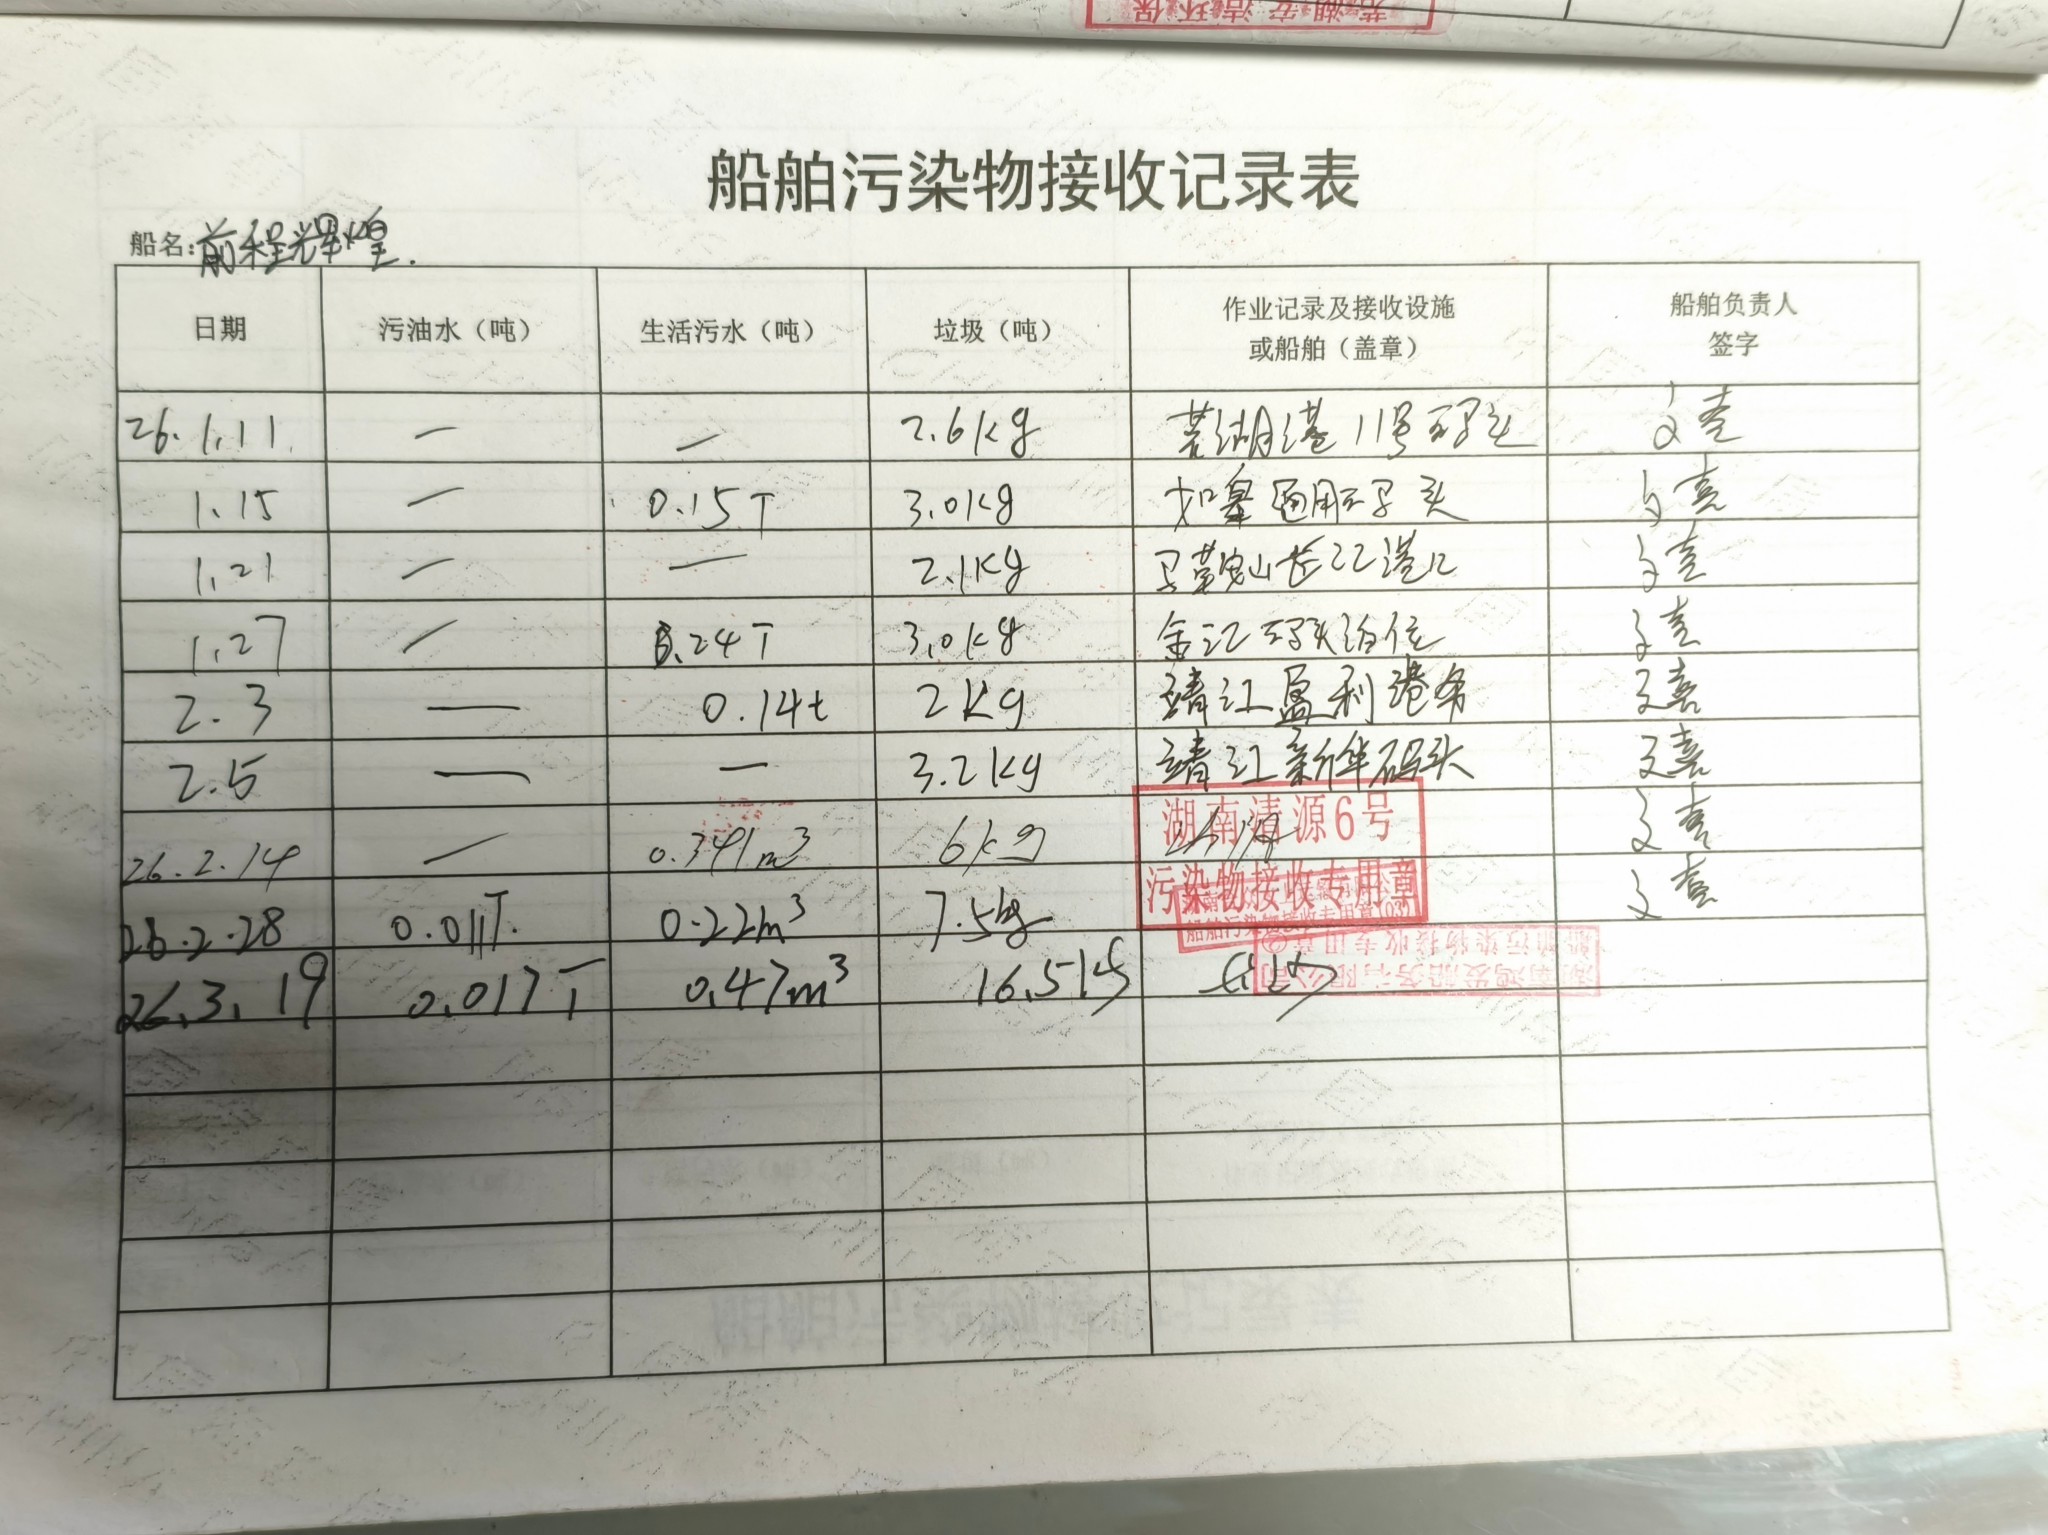 芜湖安洁环保
船舶污染物接收记录表
船名：前程辉煌.
日期 污油水（吨） 生活污水（吨） 垃圾（吨） 作业记录及接收设施或船舶（盖章） 船舶负责人签字
26.1.11 — — 2.6kg 芜湖港11号码头
1.15 — 0.15T 3.0kg 如皋通用码头
1.21 — — 2.1kg 马鞍山长江港口
1.27 — 0.24T 3.0kg 金江码头泊位
2.3 — 0.14t 2kg 靖江盈利港务 文喜
2.5 — — 3.2kg 靖江新华码头 文喜
26.2.14 — 0.341m³ 6kg 湖南清源6号 文喜
污染物接收专用章
26.2.28 0.011T. 0.22m³ 7.5kg 文喜
船舶污染物接收专用章(03)
船舶污染物接收专用章②
湖南鸿发船务有限公司
26.3.19 0.017T 0.47m³ 16.5kg